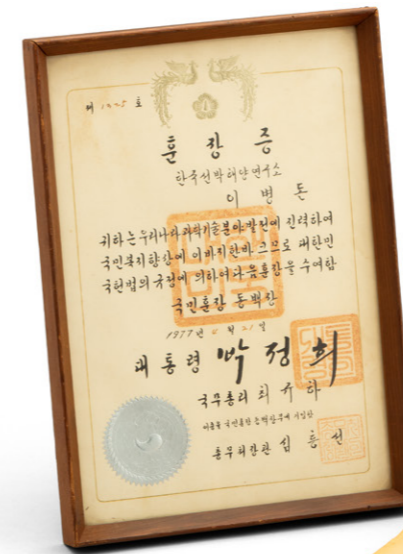 제 1225 호
훈 장 증
한국선박해양연구소
이 병 돈
귀하는 우리나라 과학기술분야발전에 진력하여
국민복지향상에 이바지한바 크므로 대한민
국헌법의 규정에 의하여 다음훈장을 수여함
국민훈장 동백장
1977년 월 21일
대통령 박정희
국무총리 최규하
이증을 국민훈장 동백장부에 기입함
총무처장관 심흥선